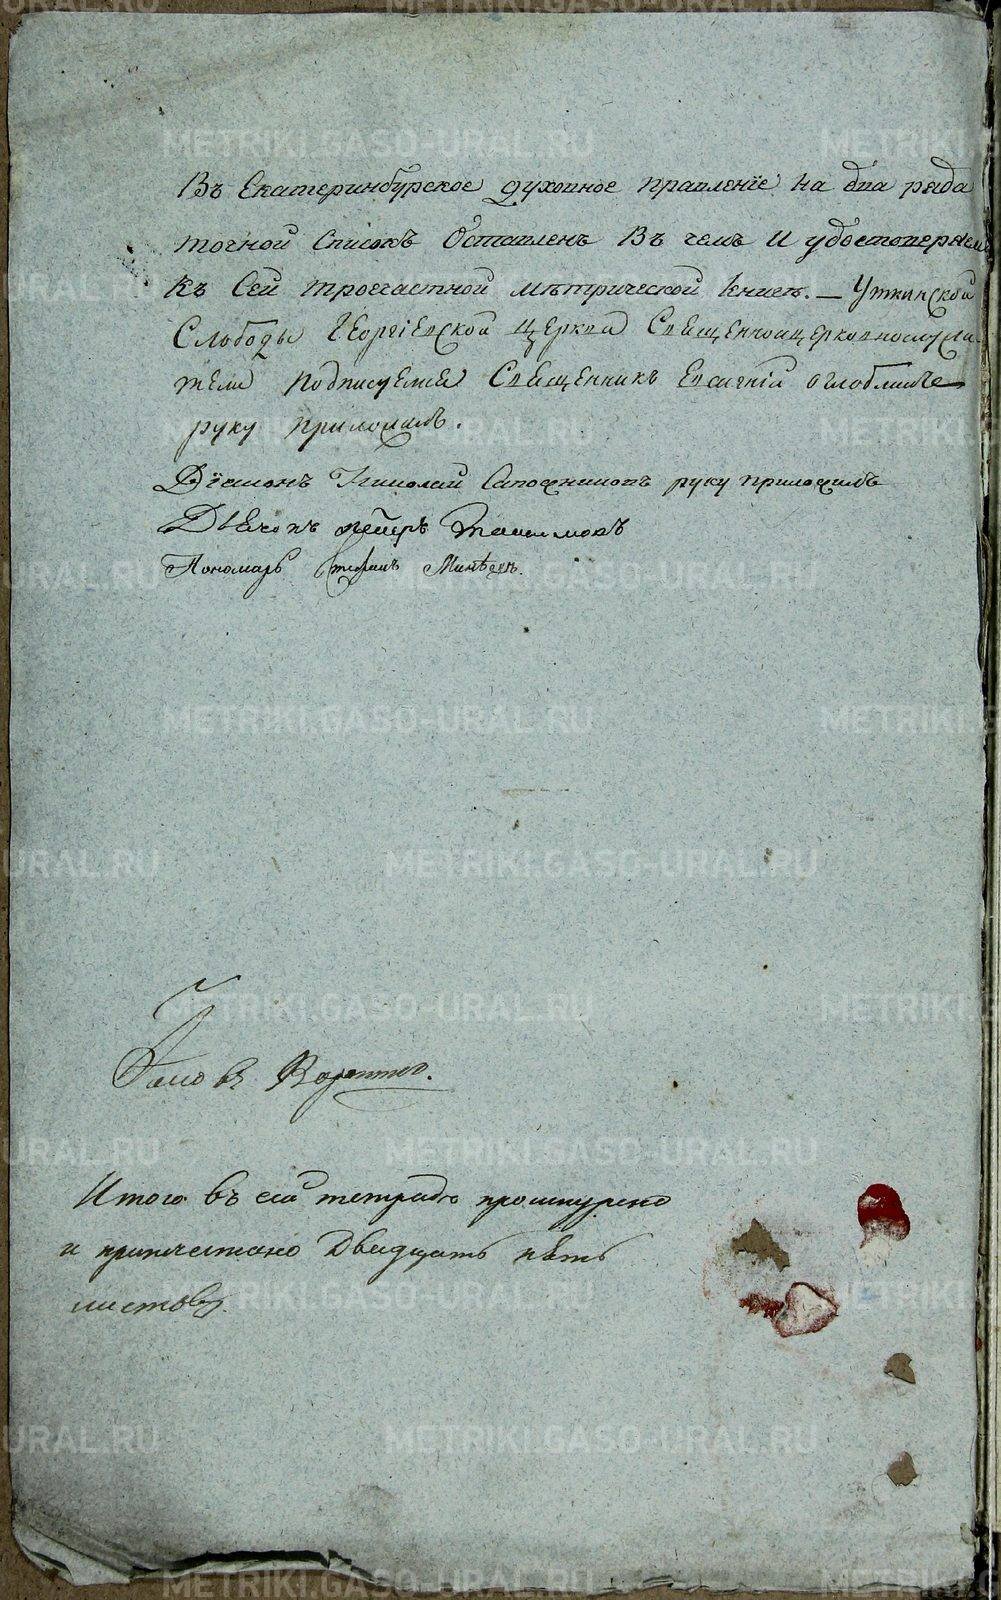 Въ Екатеринбурское духовное правленїе на два ряда
точной Списокъ Оставленъ Въ чемъ И удостоверяем
къ Сей троечастной мѣтрической книгѣ. — Уткинской
Слободы Георгїевской церкви Священноицерковнослужи-
тели подписуемся Священникъ Евсигнїй Оглоблинъ
руку приложилъ.
Дїаконъ Николай Сапожниковъ руку приложилъ
Дьячокъ петръ
Пономарь Стефанъ
Итого въ сей тетрадѣ прошнурено
и припечатано Двадцать пять
листовъ.
METRIKI.GASO-URAL.RU